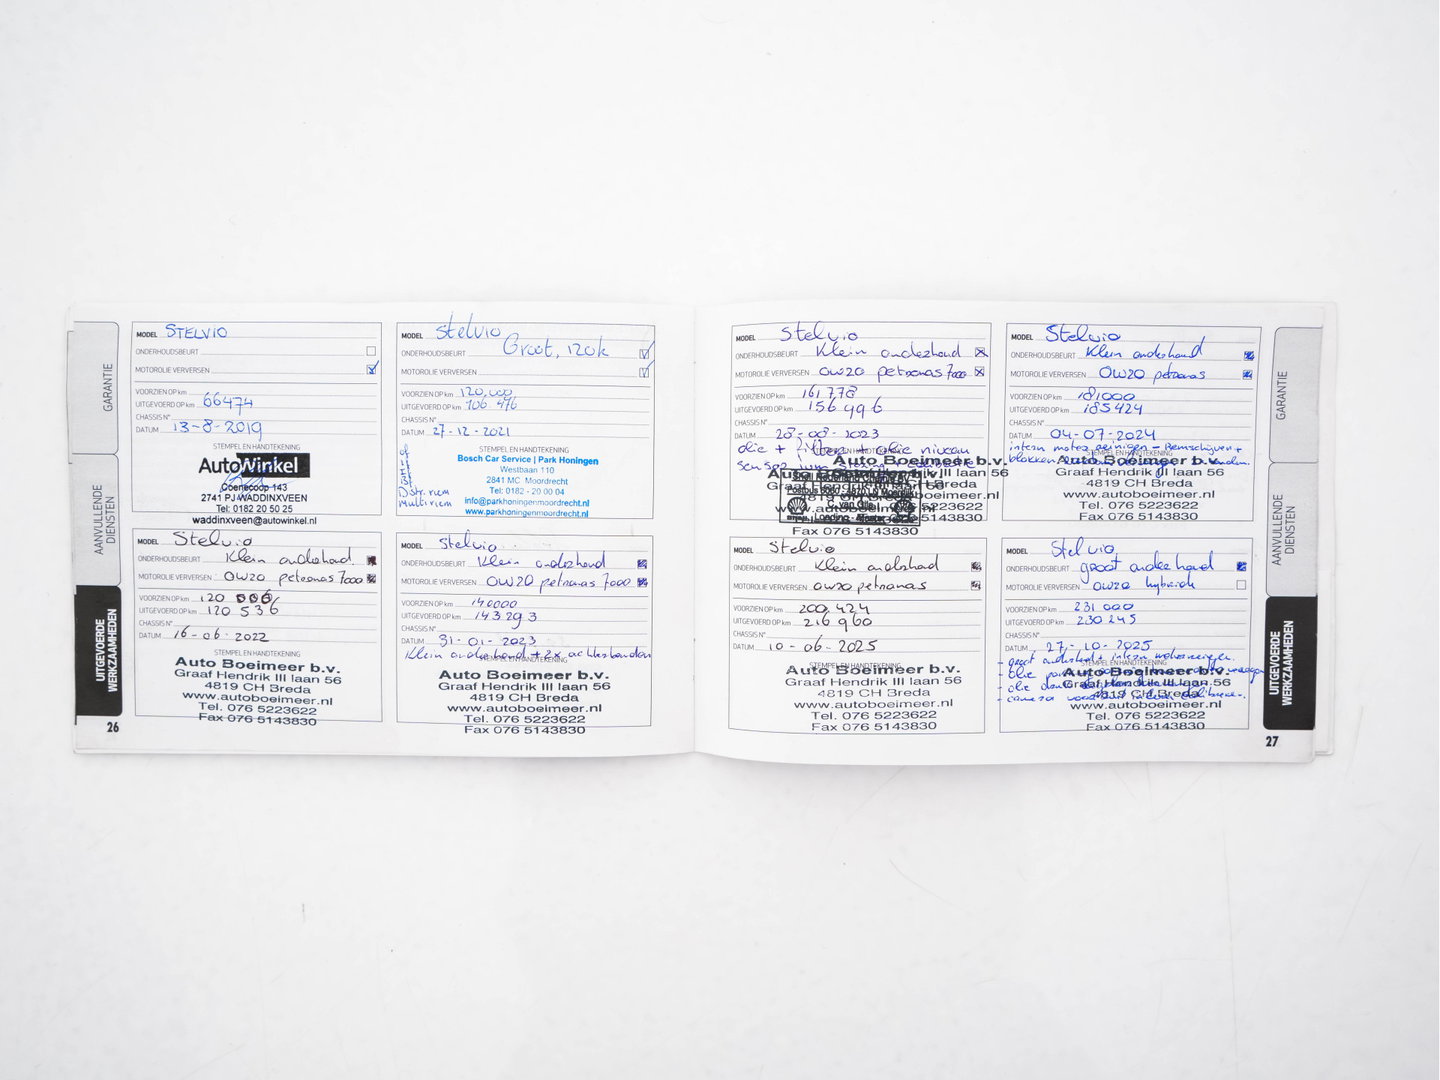 GARANTIE
AANVULLENDE
DIENSTEN
UITGEVOERDE
WERKZAAMHEDEN
26
MODEL STELVIO
ONDERHOUDSBEURT
MOTOROLIE VERVERSEN
VOORZIEN OP km 66474
UITGEVOERD OP km
CHASSIS N°
DATUM 13-8-2019
STEMPEL EN HANDTEKENING
AutoWinkel
Coenecoop 143
2741 PJ WADDINXVEEN
Tel: 0182 20 50 25
waddinxveen@autowinkel.nl
MODEL Stelvio
ONDERHOUDSBEURT Groot, 120k
MOTOROLIE VERVERSEN
VOORZIEN OP km 120.000
UITGEVOERD OP km 106 476
CHASSIS N°
DATUM 27-12-2021
STEMPEL EN HANDTEKENING
Dstrium
Multiriem
Bosch Car Service | Park Honingen
Westbaan 110
2841 MC Moordrecht
Tel: 0182 - 20 00 04
info@parkhoningenmoordrecht.nl
www.parkhoningenmoordrecht.nl
MODEL Stelvio
ONDERHOUDSBEURT Klein onderhoud
MOTOROLIE VERVERSEN 0W20 petronas 7000
VOORZIEN OP km 120
UITGEVOERD OP km 120 536
CHASSIS N°
DATUM 16-06-2022
STEMPEL EN HANDTEKENING
Auto Boeimeer b.v.
Graaf Hendrik III laan 56
4819 CH Breda
www.autoboeimeer.nl
Tel. 076 5223622
Fax 076 5143830
MODEL Stelvio
ONDERHOUDSBEURT Klein onderhoud
MOTOROLIE VERVERSEN 0W20 petronas 7000
VOORZIEN OP km 140000
UITGEVOERD OP km 143 293
CHASSIS N°
DATUM 31-01-2023
Klein onderhoud + 2x achterbanden
STEMPEL EN HANDTEKENING
Auto Boeimeer b.v.
Graaf Hendrik III laan 56
4819 CH Breda
www.autoboeimeer.nl
Tel. 076 5223622
Fax 076 5143830
MODEL Stelvio
ONDERHOUDSBEURT Klein onderhoud
MOTOROLIE VERVERSEN 0W20 petronas 7000
VOORZIEN OP km 161 778
UITGEVOERD OP km 156 496
CHASSIS N°
DATUM 28-08-2023
olie + filters + olie niveau
sensor
Auto Boeimeer b.v.
Graaf Hendrik III laan 56
4819 CH Breda
www.autoboeimeer.nl
Tel. 076 5223622
Fax 076 5143830
MODEL Stelvio
ONDERHOUDSBEURT Klein onderhoud
MOTOROLIE VERVERSEN 0W20 petronas
VOORZIEN OP km 181000
UITGEVOERD OP km 185424
CHASSIS N°
DATUM 04-07-2024
intern motor reinigen + Remschijven +
blokken
STEMPEL EN HANDTEKENING
Auto Boeimeer b.v.
Graaf Hendrik III laan 56
4819 CH Breda
www.autoboeimeer.nl
Tel. 076 5223622
Fax 076 5143830
MODEL Stelvio
ONDERHOUDSBEURT Klein onderhoud
MOTOROLIE VERVERSEN 0W20 petronas
VOORZIEN OP km 200 424
UITGEVOERD OP km 216 960
CHASSIS N°
DATUM 10-06-2025
STEMPEL EN HANDTEKENING
Auto Boeimeer b.v.
Graaf Hendrik III laan 56
4819 CH Breda
www.autoboeimeer.nl
Tel. 076 5223622
Fax 076 5143830
MODEL Stelvio
ONDERHOUDSBEURT groot onderhoud
MOTOROLIE VERVERSEN 0W20 hybride
VOORZIEN OP km 231 000
UITGEVOERD OP km 230 245
CHASSIS N°
DATUM 27-10-2025
- groot onderhoud + intern motorreiniger
STEMPEL EN HANDTEKENING
Auto Boeimeer b.v.
Graaf Hendrik III laan 56
4819 CH Breda
www.autoboeimeer.nl
Tel. 076 5223622
Fax 076 5143830
GARANTIE
AANVULLENDE
DIENSTEN
UITGEVOERDE
WERKZAAMHEDEN
27